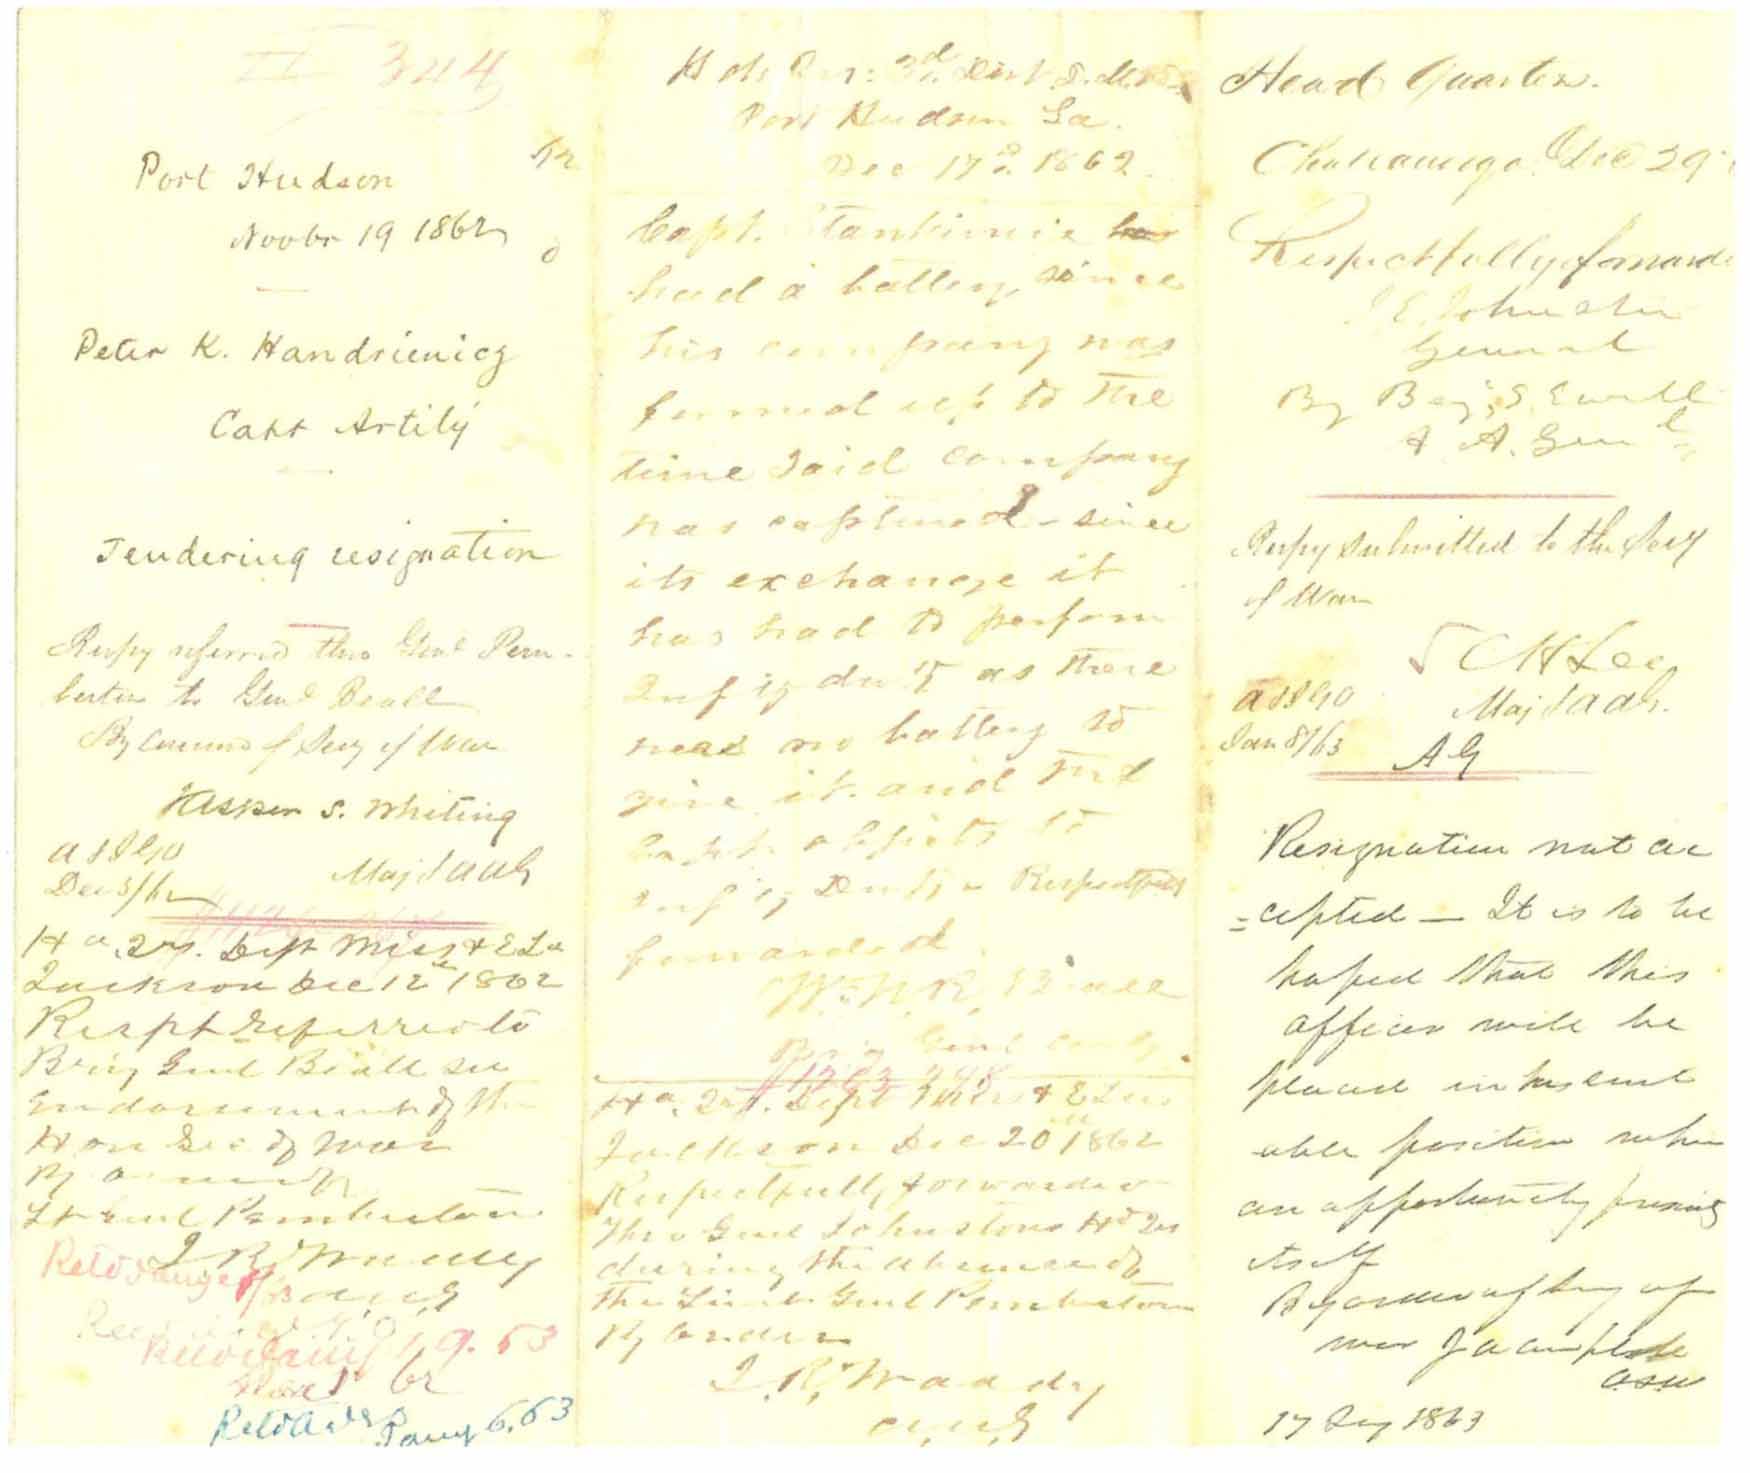 344
Port Hudson
Novbr 19 1862
Peter K. Handrienicz
Capt Artily
Tendering resignation
Respy referred thro Genl Pem-
berton to Genl Beall
By Comnd of Secy of War
Jasper S. Whiting
Maj & AAG
A & I G O
Dec 3/62
Hd Qrs. Dept Miss & E La
Jackson Dec 12th 1862
Respt referred to
Brig Genl Beall see
endorsement of the
Hon Sec of War
By order of
Lt Genl Pemberton
J. R. Waddy
A.A.G
63
Recd A & I G O Jany 6. 63
Hd Qrs: 3d Dist. D.M.
Port Hudson La.
Dec 17th 1862.
Capt. Stankiewicz
had a battery, since
his company was
formed up to the
time said company
was captured - since
its exchange it
has had to perform
Infty duty as there
was no battery to
give it. and the
Capt objects to
Infty Duty - Respectfully
forwarded.
W. N. R. Beall
Brig Genl Comdg.
Hd. Qrs. Dept Miss & E Lou
Jackson Dec 20th 1862
Respectfully forwarded
Thro Genl Johnstons Hd Qrs
during the absence of
the Lieut Genl Pemberton
By order
J. R. Waddy
A.A.G
Head Quarters.
Chattanooga, Dec 29th
Respectfully forwarde
J. E. Johnston
General
By Benj. S. Ewell
A. A. Genl
Respy submitted to the Secy
of War
C H Lee
Maj & AAG.
A & I G O
Jan 8/63
AG
Resignation not ac
=cepted — It is to be
hoped that this
officer will be
placed in his suit
able position when
an opportunity presents
itself
By order of Secy of
War J A Campbell
ASW
17 Jay 1863